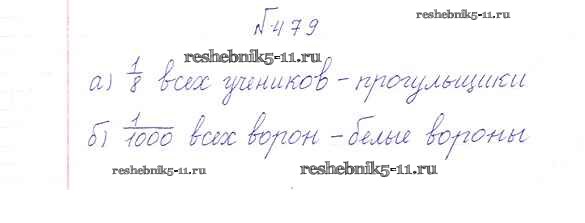 №479
reshebnik5-11.ru
reshebnik5-11.ru
а) 1/8 всех учеников – прогульщики
б) 1/1000 всех ворон – белые вороны
reshebnik5-11.ru
reshebnik5-11.ru